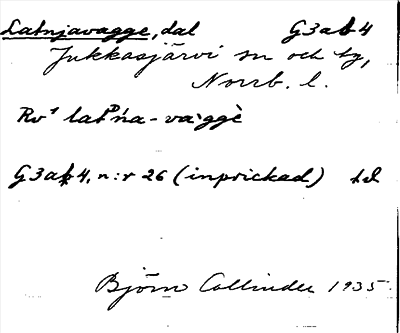 Latnjavagge, dal G3ab4
Jukkasjärvi sn och tg,
Norrb. l.
Rv¹ latᴰńa-va`ggè
G3ab4, n:r 26 (inprickad)
Björn Collinder 1935.